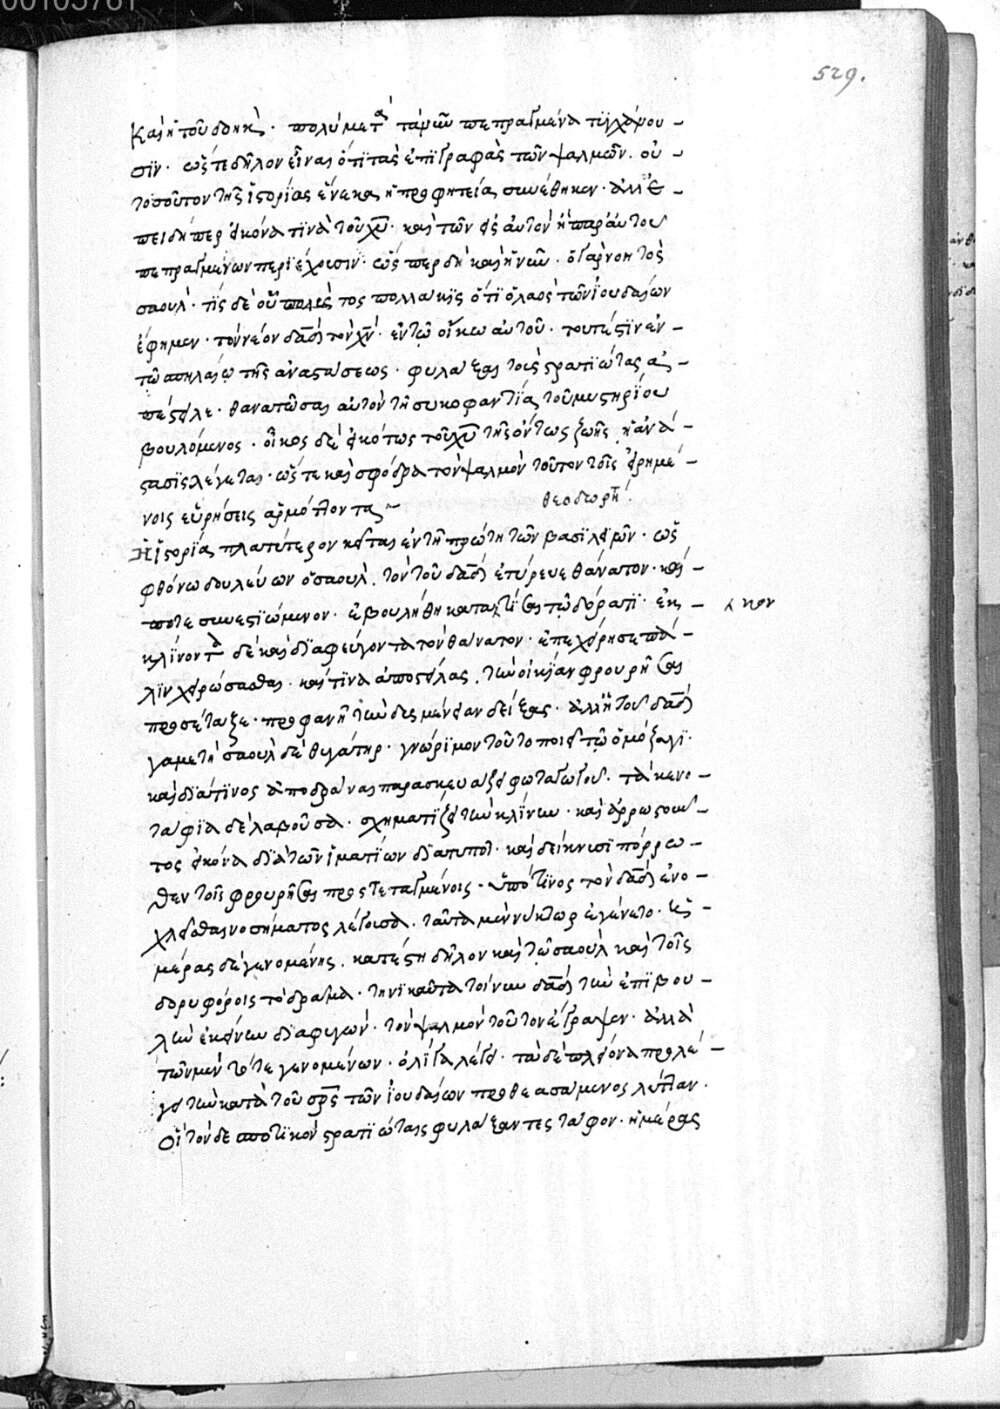 00105761
529.
Καὶ ἡ τοῦ σδηκ̀. πολὺ μετὰ ταῦτα πεπραγμένα τυγχάνου-
σιν. ὥστε δῆλον εἶναι ὅτι τὰς ἐπιγραφὰς τῶν ψαλμῶν. οὐ-
τοσοῦτον τῆς ἱστορίας ἕνεκα ἡ προφητεία συνέθηκεν. ἀλλ' ἐ-
πειδήπερ εἰκόνα τινὰ τοῦ χῡ. καὶ τῶν εἰς αὐτὸν ἢ παρ' αὐτοῦ
πεπραγμένων περιέχουσιν. ὥσπερ δὴ καὶ ἡ νῦν. ὁ γὰρ νοητὸς
σαούλ. τίς δὲ οὗτος πολλάκις ὅτι ὁ λαὸς τῶν ἰουδαίων
ἔφημεν. τὸν νέον δᾱδ τὸν χν̄. ἐν τῷ οἴκω αὐτοῦ. τουτέστιν ἐν-
τῷ σπηλαίῳ τῆς ἀναστάσεως. φυλάξαι τοὺς στρατιώτας ἀ-
πέστειλε. θανατῶσαι αὐτὸν τῇ συκοφαντίᾳ τοῦ μυστηρίου
βουλόμενος. οἶκος δὲ εἰκότως τοῦ χῡ τῆς ὄντως ζωῆς, ἡ ἀνά-
στασις λέγεται. ὥστε καὶ σφόδρα τὸν ψαλμὸν τοῦτον τοῖς εἰρημέ-
νοις εὑρήσεις ἁρμόττοντα~ θεοδωρήτ:
Ἡ ἱστορία πλατύτερον κεῖται ἐν τῇ πρώτη τῶν βασιλειῶν. ὡς
φθόνω δουλεύων ὁ σαούλ. τὸν τοῦ δᾱδ ἐτύρευε θάνατον. καί-
ποτε συνεστιώμενον. ἐβουλήθη κατακτεῖναι τῷ δόρατι. ἐκ-
κλίνοντα δὲ καὶ διαφεύγοντα τὸν θάνατον. ἐπεχείρησε πά-
λιν χειρώσασθαι. καί τινα ἀποστείλας, τὴν οἰκίαν φρουρῆσαι
προσέταξε. προφανῆ τὴν δυσμένειαν δείξας. ἀλλ' ἡ τοῦ δᾱδ
γαμετὴ σαοὺλ δὲ θυγάτηρ. γνώριμον τοῦτο ποιεῖ τῷ ὁμόζυγι.
καὶ διά τινος ἀποδρᾶναι παρασκευάζει φωταγωγοῦ. τὰ κενο-
τάφια δὲ λαβοῦσα. σχηματίζει τὴν κλίνην. καὶ ἀρρωστοῦν-
τος εἰκόνα διὰ τῶν ἱματίων διατυποῖ. καὶ δείκνυσι πόρρω-
θεν τοῖς φρουρῆσαι προστεταγμένοις. ὑπό τινος τὸν δᾱδ ἐνο-
χλεῖσθαι νοσήματος λέγουσα. ταῦτα μὲν νύκτωρ ἐγένετο. ἡ-
μέρας δὲ γενομένης. κατέστη δῆλον καὶ τῷ σαοὺλ καὶ τοῖς
δορυφόροις τὸ δρᾶμα. τηνικαῦτα τοίνυν δᾱδ τὴν ἐπιβου-
λὴν ἐκείνην διαφυγών. τὸν ψαλμὸν τοῦτον ἔγραψεν. ἀλλὰ
τῶν μὲν τότε γενομένων. ὀλίγα λέγει. τὰ δὲ πλείονα προλέ-
γει τὴν κατὰ τοῦ σρ̄ς τῶν ἰουδαίων προθεασάμενος λύτταν.
Οἱ τὸν δεσποτικὸν στρατιώταις φυλάξαντες τάφον. ἡμέρας